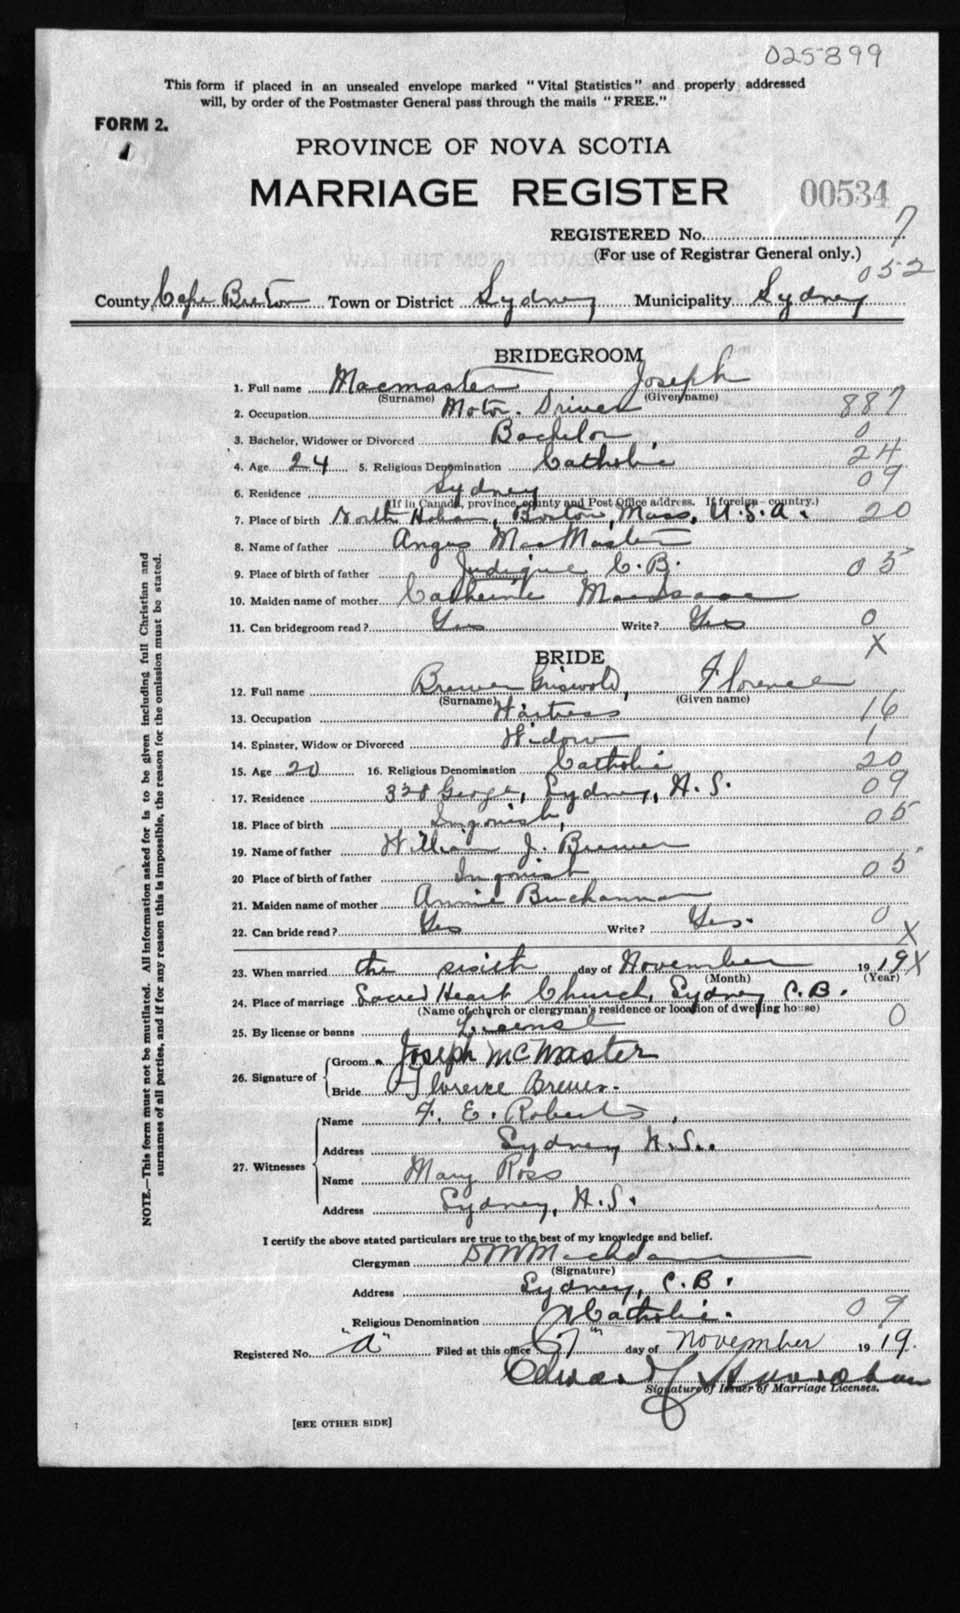 025899
This form if placed in an unsealed envelope marked "Vital Statistics" and properly addressed
will, by order of the Postmaster General pass through the mails "FREE."
FORM 2.
1
PROVINCE OF NOVA SCOTIA
MARRIAGE REGISTER 00534
REGISTERED No. 7
(For use of Registrar General only.)
052
County Cape Breton Town or District Sydney Municipality Sydney
BRIDEGROOM
1. Full name Macmaster Joseph
(Surname) (Given name)
2. Occupation Motor. Driver 887
3. Bachelor, Widower or Divorced Bachelor 0
4. Age 24 5. Religious Denomination Catholic 24
6. Residence Sydney 09
(If in Canada, province, county and Post Office address. If foreign—country.)
7. Place of birth North Boston, Mass, U.S.A. 20
8. Name of father Angus MacMaster
9. Place of birth of father Judique C.B. 05
10. Maiden name of mother Catherine MacIsaac
11. Can bridegroom read? Yes Write? Yes 0
X
BRIDE
12. Full name Brewer Griswold, Florence
(Surname) (Given name)
13. Occupation Waitress 16
14. Spinster, Widow or Divorced Widow 1
15. Age 20 16. Religious Denomination Catholic 20
17. Residence 328 George, Sydney, N.S. 09
18. Place of birth Ingonish, 05
19. Name of father William J. Brewer
20 Place of birth of father Ingonish 05
21. Maiden name of mother Annie Buchannan
22. Can bride read? Yes Write? Yes. 0
X
23. When married the sixth day of November 1919 X
(Month) (Year)
24. Place of marriage Sacred Heart Church, Sydney C.B.
(Name of church or clergyman's residence or location of dwelling house)
25. By license or banns License 0
26. Signature of Groom Joseph McMaster
Bride Florence Brewer.
27. Witnesses Name F. E. Roberts,
Address Sydney N.S.
Name Mary Ross
Address Sydney, N.S.
I certify the above stated particulars are true to the best of my knowledge and belief.
Clergyman
(Signature)
Address Sydney, C.B.
Religious Denomination Catholic. 09
Registered No. "A" Filed at this office 7th day of November 1919.
Signature of Issuer of Marriage Licenses.
[SEE OTHER SIDE]
NOTE.—This form must not be mutilated. All information asked for is to be given including full Christian and
surnames of all parties, and if for any reason this is impossible, the reason for the omission must be stated.